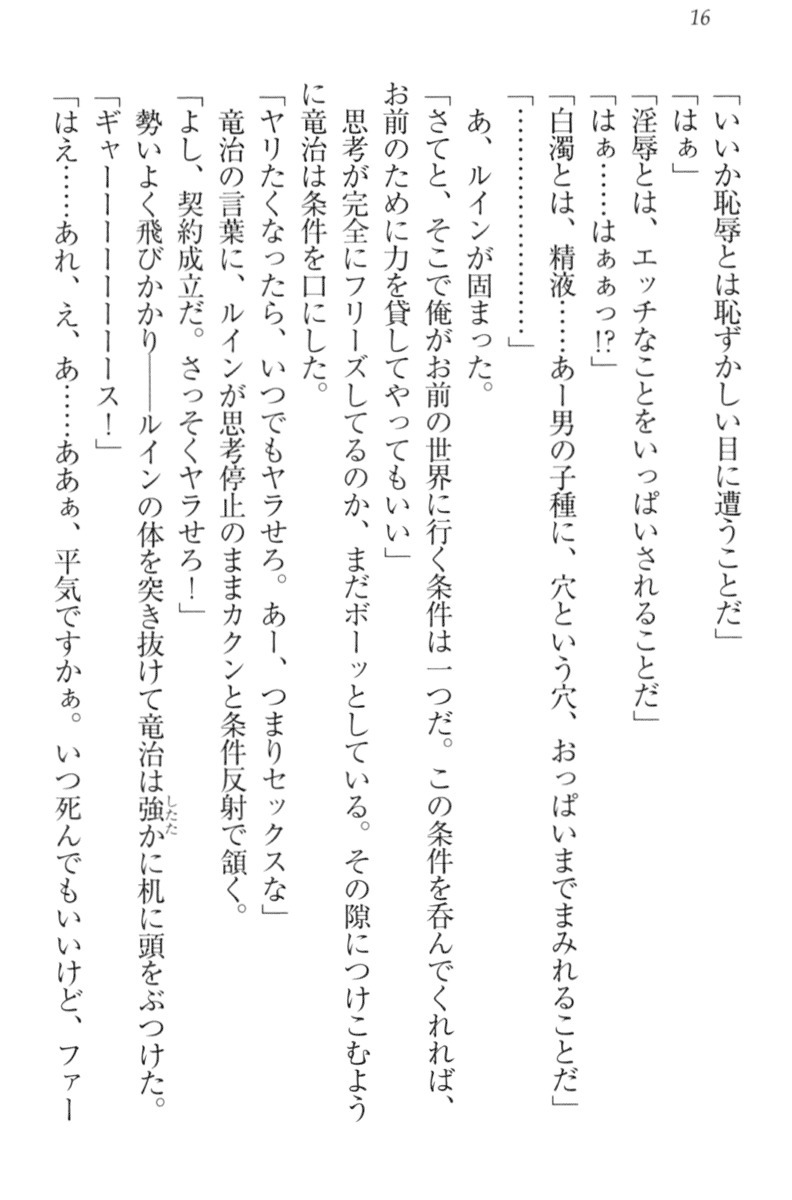 16
「いいか恥辱とは恥ずかしい目に遭うことだ」
「はぁ」
「淫辱とは、エッチなことをいっぱいされることだ」
「はぁ……はぁぁっ!?」
「白濁とは、精液……あー男の子種に、穴という穴、おっぱいまでまみれることだ」
「…………………」
あ、ルインが固まった。
「さてと、そこで俺がお前の世界に行く条件は一つだ。この条件を呑んでくれれば、
お前のために力を貸してやってもいい」
思考が完全にフリーズしてるのか、まだボーッとしている。その隙につけこむよう
に竜治は条件を口にした。
「ヤリたくなったら、いつでもヤラせろ。あー、つまりセックスな」
竜治の言葉に、ルインが思考停止のままカクンと条件反射で頷く。
「よし、契約成立だ。さっそくヤラせろ！」
勢いよく飛びかかり――ルインの体を突き抜けて竜治は強かに机に頭をぶつけた。
したた
「ギャーーーーーーーース！」
「はえ……あれ、え、あ……ああぁ、平気ですかぁ。いつ死んでもいいけど、ファー